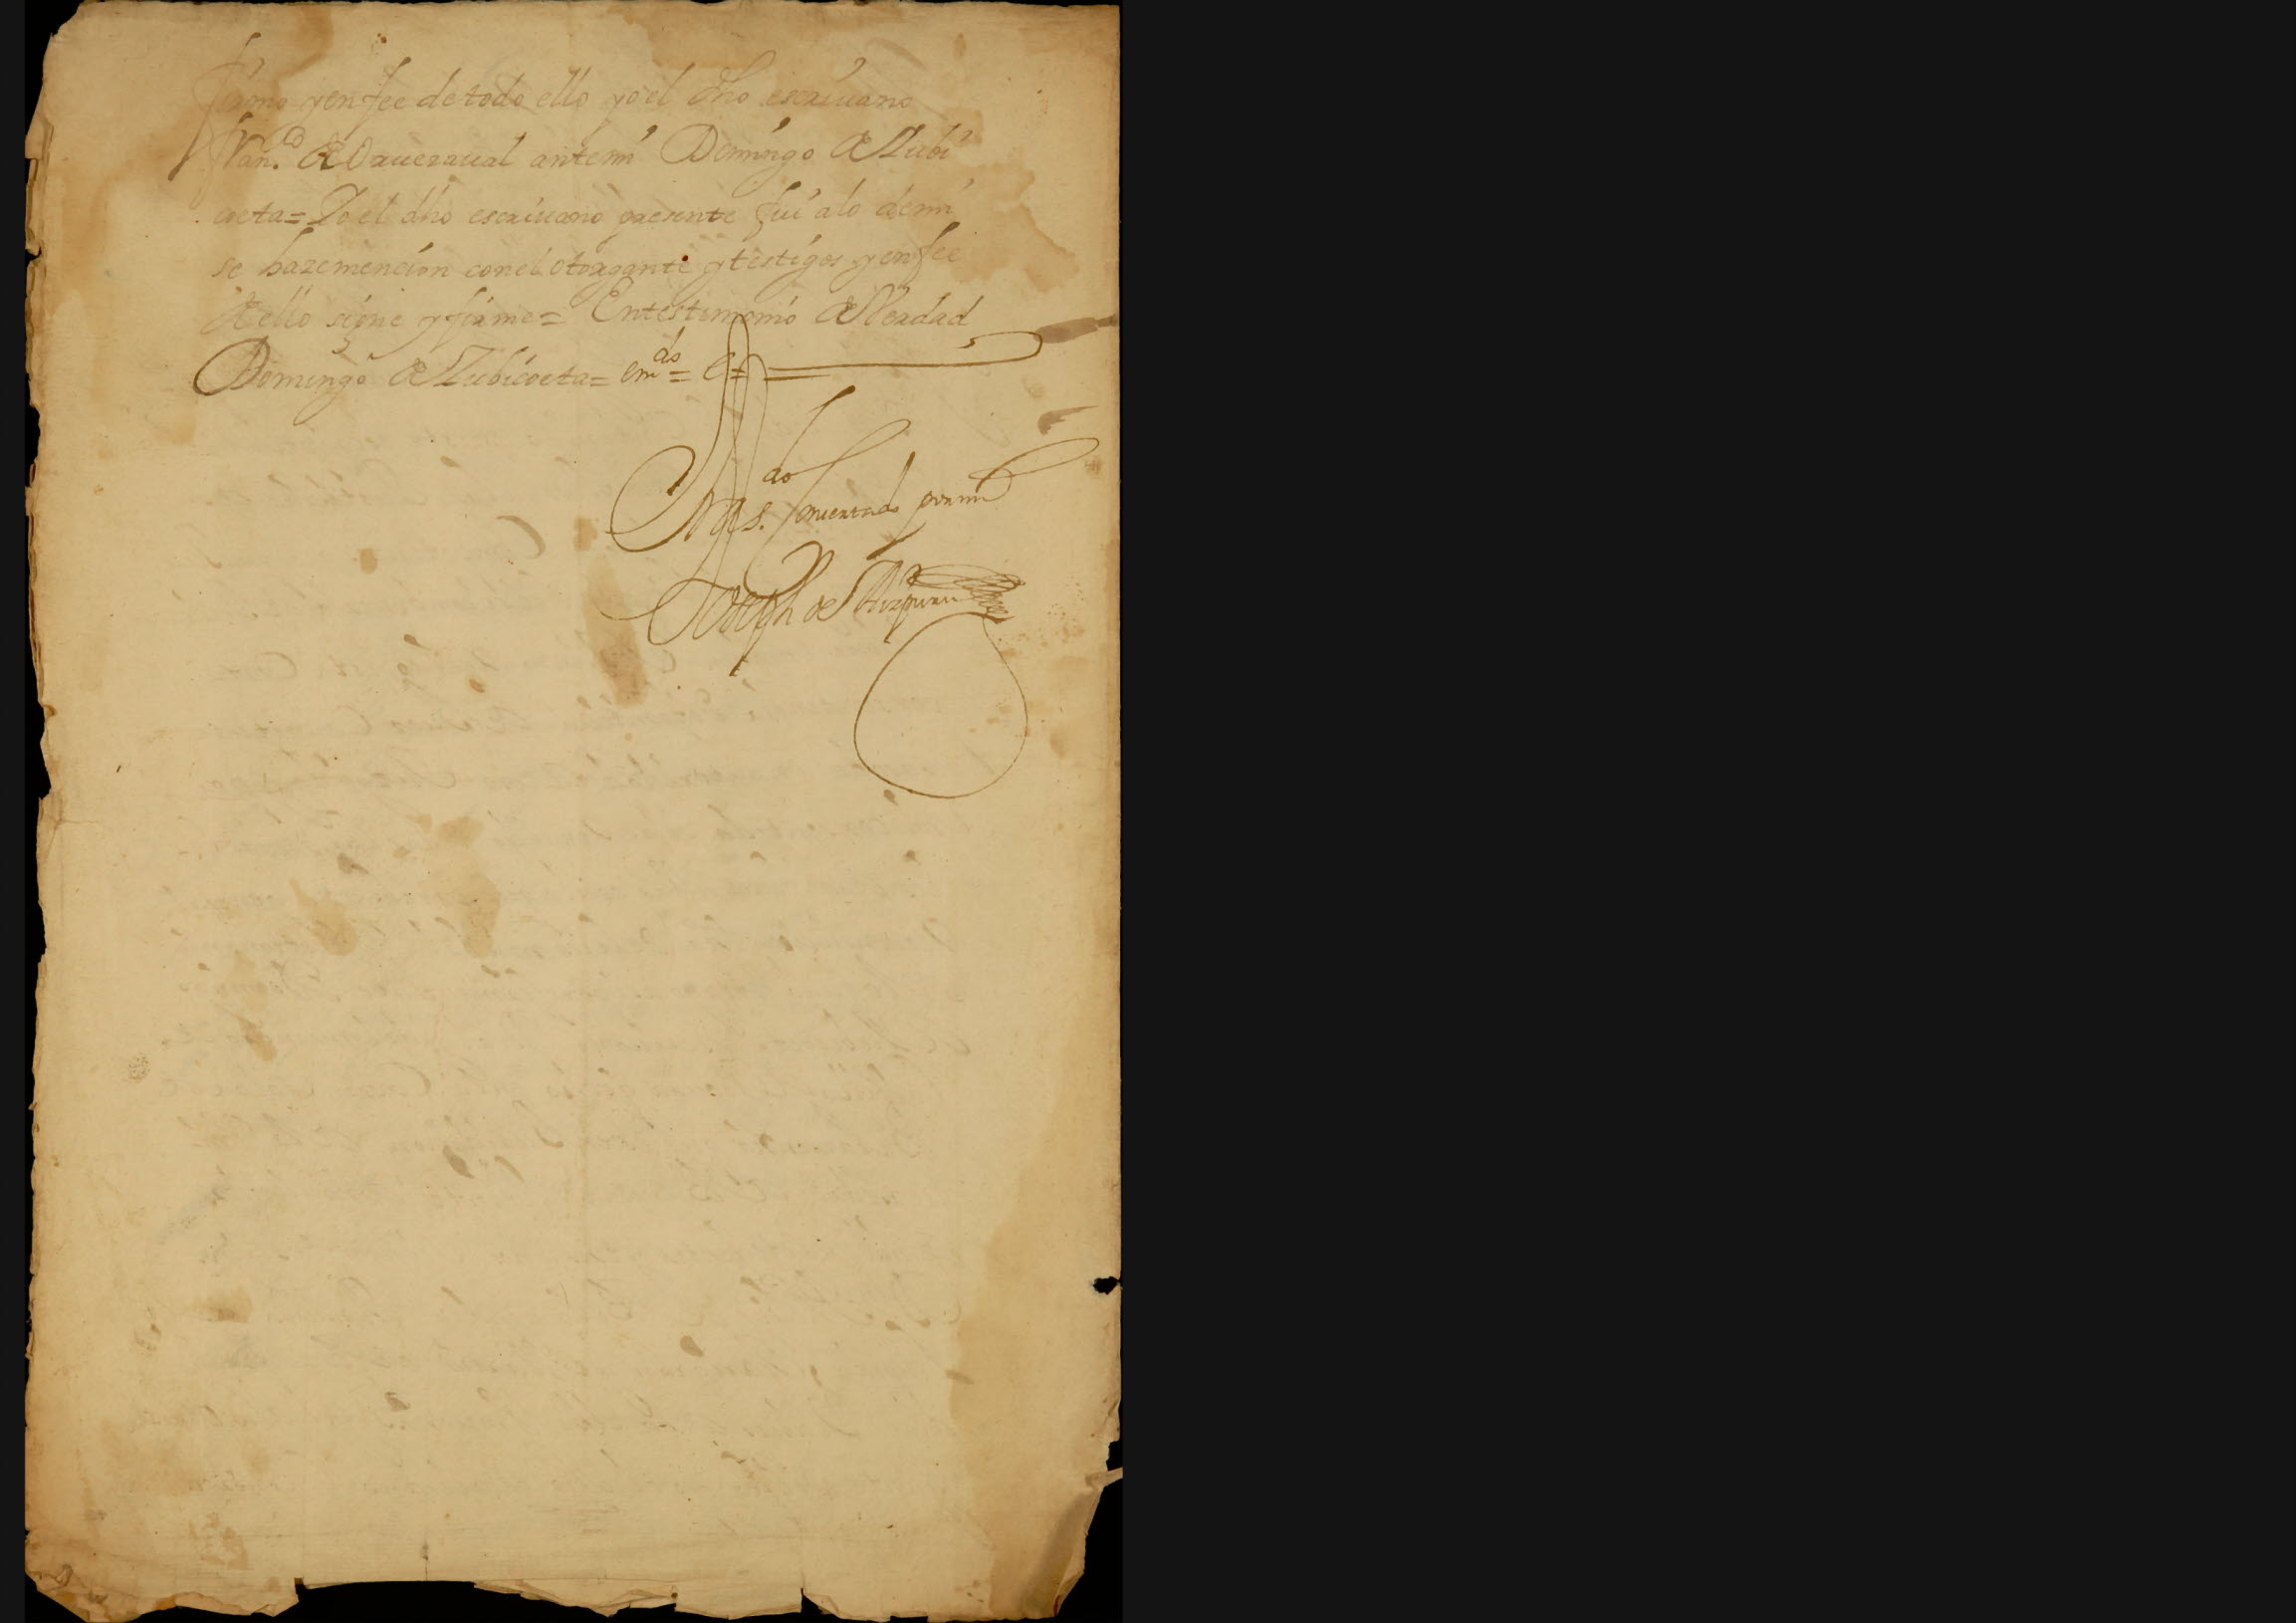 firmo y en fee de todo ello yo el dho escriuano
Fran.co de Oaueraual ante mi Domingo de Zubi
coeta = Yo el dho escriuano presente fui a lo de mi
se haze mencion con el otorgante y testigos y en fee
de ello signe y firme = En testimonio de Verdad
Domingo de Zubicoeta = em.do = e =
do Concertado por mi
Joseph de Aizpuru